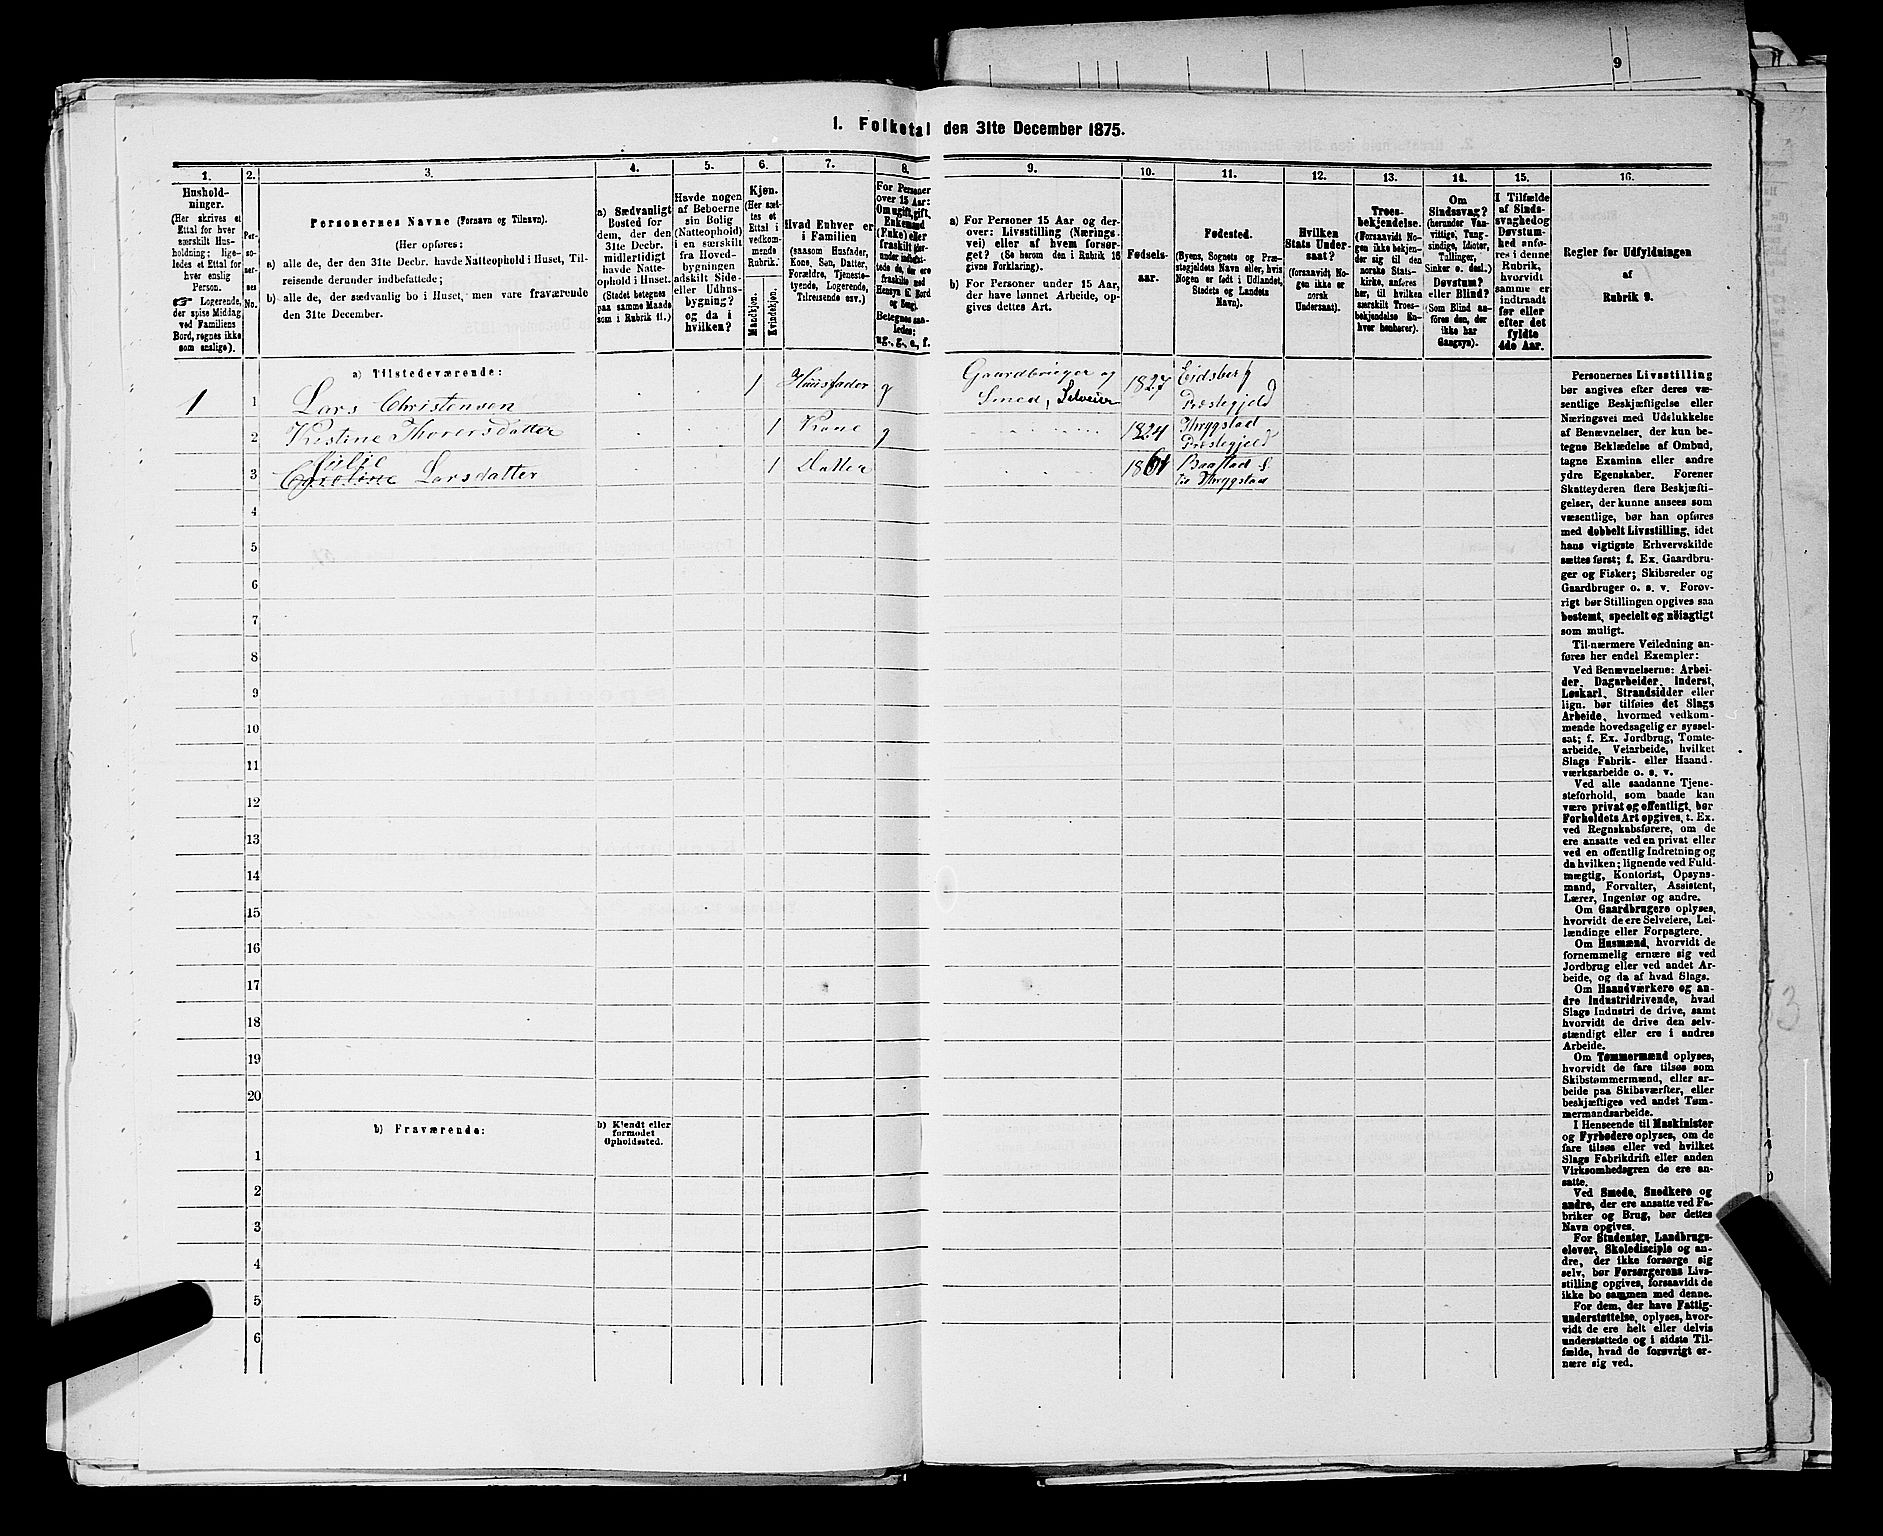 9
1. Folketal den 31te December 1875.
1.
2.
3.
4.
5.
6.
7.
8.
9.
10.
11.
12.
13.
14.
15.
16.
Hushold-
ninger.
(Her skrives et
Ettal for hver
særskilt Hus-
holdning; lige-
ledes et Ettal for
hver enslig
Person.
☞ Logerende,
der spise Middag
ved Familiens
Bord, regnes ikke
som enslige).
Per-
so-
ner-
nes
No.
Personernes Navne (Fornavn og Tilnavn).
(Her opføres:
a) alle de, der den 31te Decbr. havde Natteophold i Huset, Til-
reisende derunder indbefattede;
b) alle de, der sædvanlig bo i Huset, men vare fraværende
den 31te December.
a) Sædvanligt
Bosted for
dem, der den
31te Decbr.
midlertidigt
havde Natte-
ophold i Huset.
(Stedet betegnes
paa samme Maade
som i Rubrik 11.)
Havde nogen
af Beboerne
sin Bolig
(Natteophold)
i en særskilt
fra Hoved-
bygningen
adskilt Side-
eller Udhus-
bygning?
og da i
hvilken?
Kjøn.
(Her sæt-
tes et
Ettal i
vedkom-
mende
Rubrik.)
Mandkjøn.
Kvindekjøn.
Hvad Enhver er
i Familien
(saasom Husfader,
Kone, Søn, Datter,
Forældre, Tjeneste-
tyende, Logerende,
Tilreisende osv.)
For Personer
over 15 Aar:
Om ugift, gift,
Enkemand
(Enke) eller
fraskilt
a) For Personer 15 Aar og der-
over: Livsstilling (Nærings-
vei) eller af hvem forsør-
get? (Se herom den i Rubrik 16
givne Forklaring).
b) For Personer under 15 Aar,
der have lønnet Arbeide, op-
gives dettes Art.
Fødsels-
aar.
Fødested.
(Byens, Sognets og Præ-
stegjeldets Navn eller, hvis
Nogen er født i Udlandet,
Stedets og Landets
Navn).
Hvilken
Stats Under-
saat?
(forsaavidt No-
gen ikke er
norsk
Undersaat).
Troes-
bekjendelse.
(Forsaavidt No-
gen ikke bekjen-
der sig til den
norske Stats-
kirke, anføres
her, til hvilken
særskilt Troes-
bekjendelse En-
hver henhører).
Om
Sindssvag?
(herunder Van-
vittige, Tung-
sindige, Idioter,
Tullinger,
Sinker o. desl.)
Døvstum?
eller Blind?
(Som Blind an-
føres den, der
ikke har
Gangsyn).
I Tilfælde
af Sinds-
svaghed og
Døvstum-
hed anfø-
res i denne
Rubrik,
hvorvidt
samme er
indtraadt
før eller
efter det
fyldte
4de Aar.
Regler for Udfyldningen
af
Rubrik 9.
a) Tilstedeværende:
1 1 Lars Christensen 1 Huusfader g Gaardbruger og Smed, Selveier 1827 Eidsberg Præstegjeld
2 Kristine Thorersdatter 1 Kone g 1824 Thrygstad Præstegjeld
3 Julie Larsdatter 1 Datter 1861 Baastad S. til Thrygstad
4
5
6
7
8
9
10
11
12
13
14
15
16
17
18
19
20
b) Fraværende:
b) Kjendt eller
formodet
Opholdssted.
1
2
3
4
5
6
Personernes Livsstilling
bør angives efter deres væ-
sentlige Beskjæftigelse eller
Næringsvei med Udelukkelse
af Benævnelser, der kun be-
tegne Beklædelse af Ombud,
tagne Examina eller andre
ydre Egenskaber. Forener
Skatteyderen flere Beskjæfti-
gelser, der kunne ansees som
væsentlige, bør han opføres
med dobbelt Livsstilling, idet
hans vigtigste Erhvervskilde
sættes først; f. Ex. Gaardbru-
ger og Fisker; Skibsreder og
Gaardbruger o. s. v. Forøv-
rigt bør Stillingen opgives saa
bestemt, specielt og nöiagtigt
som muligt.
Til nærmere Veiledning an-
føres her endel Exempler:
Ved Benævnelserne: Arbei-
der, Dagarbeider, Inderst,
Løskarl, Strandsidder eller
lign. bør tilføies det Slags
Arbeide, hvormed vedkom-
mende hovedsagelig er syssel-
sat; f. Ex. Jordbrug, Tomte-
arbeide, Veiarbeide, hvilket
Slags Fabrik- eller Haand-
værksarbeide o. s. v.
Ved alle saadanne Tjene-
steforhold, som baade kan
være privat og offentligt, bør
Forholdets Art opgives, t. Ex.
ved Regnskabsførere, om de
ere ansatte ved en privat eller
ved en offentlig Indretning og
da hvilken; lignende ved Fuld-
mægtig, Kontorist, Opsyns-
mand, Forvalter, Assistent,
Lærer, Ingeniør og andre.
Om Gaardbrugere oplyses,
hvorvidt de ere Selveiere, Lei-
lændinge eller Forpagtere.
Om Husmænd, hvorvidt de
fornemmelig ernære sig ved
Jordbrug eller ved andet Ar-
beide, og da af hvad Slags.
Om Haandværkere og an-
dre Industridrivende, hvad
Slags Industri de drive, samt
hvorvidt de drive den selv-
stændigt eller ere i andres
Arbeide.
Om Tømmermænd oplyses,
hvorvidt de fare tilsøs som
Skibstømmermænd, eller ar-
beide paa Skibsværfter, eller
beskjæftiges ved andet Tøm-
mermandsarbeide.
I Henseende til Maskinister
og Fyrbødere oplyses, om de
fare tilsøs eller ved hvilket
Slags Fabrikdrift eller anden
Virksomhedsgren de ere an-
satte.
Ved Smede, Snedkere og
andre, der ere ansatte ved Fa-
briker og Brug, bør dettes
Navn opgives.
For Studenter, Landbrugs-
elever, Skoledisciple og an-
dre, der ikke forsørge sig
selv, bør Forsørgerens Livs-
stilling opgives, forsaavidt de
ikke bo sammen med denne.
For dem, der have Fattig-
understøttelse, oplyses, hvor-
vidt de ere helt eller delvis
understøttede og i sidste Til-
fælde, hvad de forøvrigt er-
nære sig ved.
3